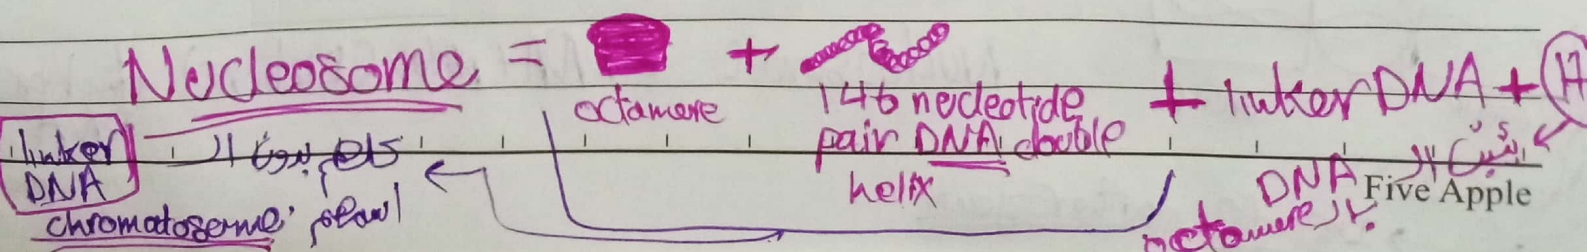 Nucleosome = + + linker DNA + H1
octamere 146 nucleotide
pair DNA double
helix
linker
DNA
كلهم بدون ال
chromatosome اسمهم
بتثبت ال
DNA
بال octamere
Five Apple